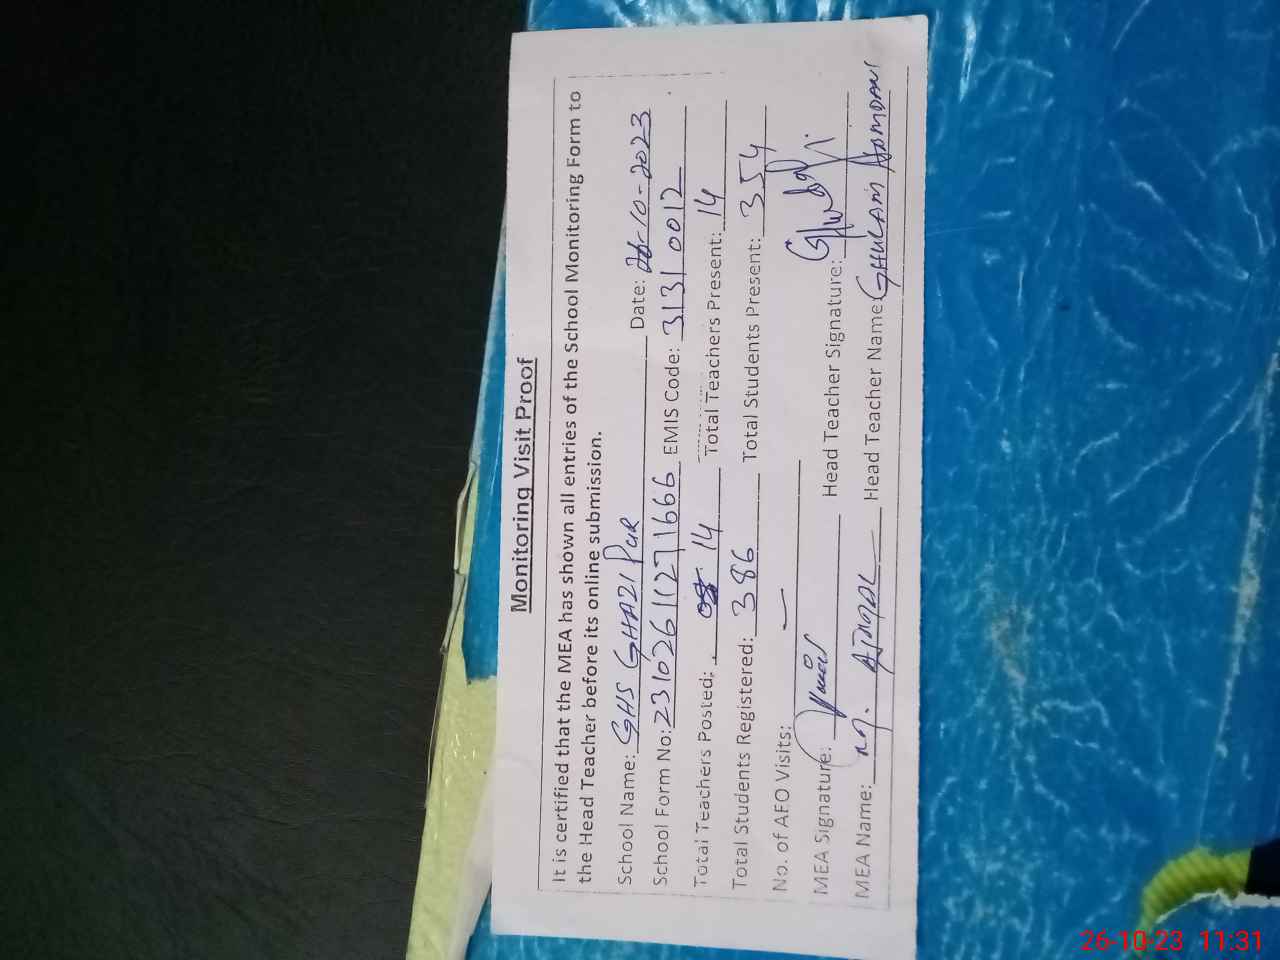 Monitoring Visit Proof
It is certified that the MEA has shown all entries of the School Monitoring Form to
the Head Teacher before its online submission.
School Name: GHS GHAZI PUR Date: 26-10-2023
School Form No: 23102611271666 EMIS Code: 31310012
Total Teachers Posted: 14 Total Teachers Present: 14
Total Students Registered: 386 Total Students Present: 354
No. of AEO Visits: —
MEA Signature: Head Teacher Signature:
MEA Name: M. AJMAL Head Teacher Name: GHULAM HAMDANI
26-10-23 11:31